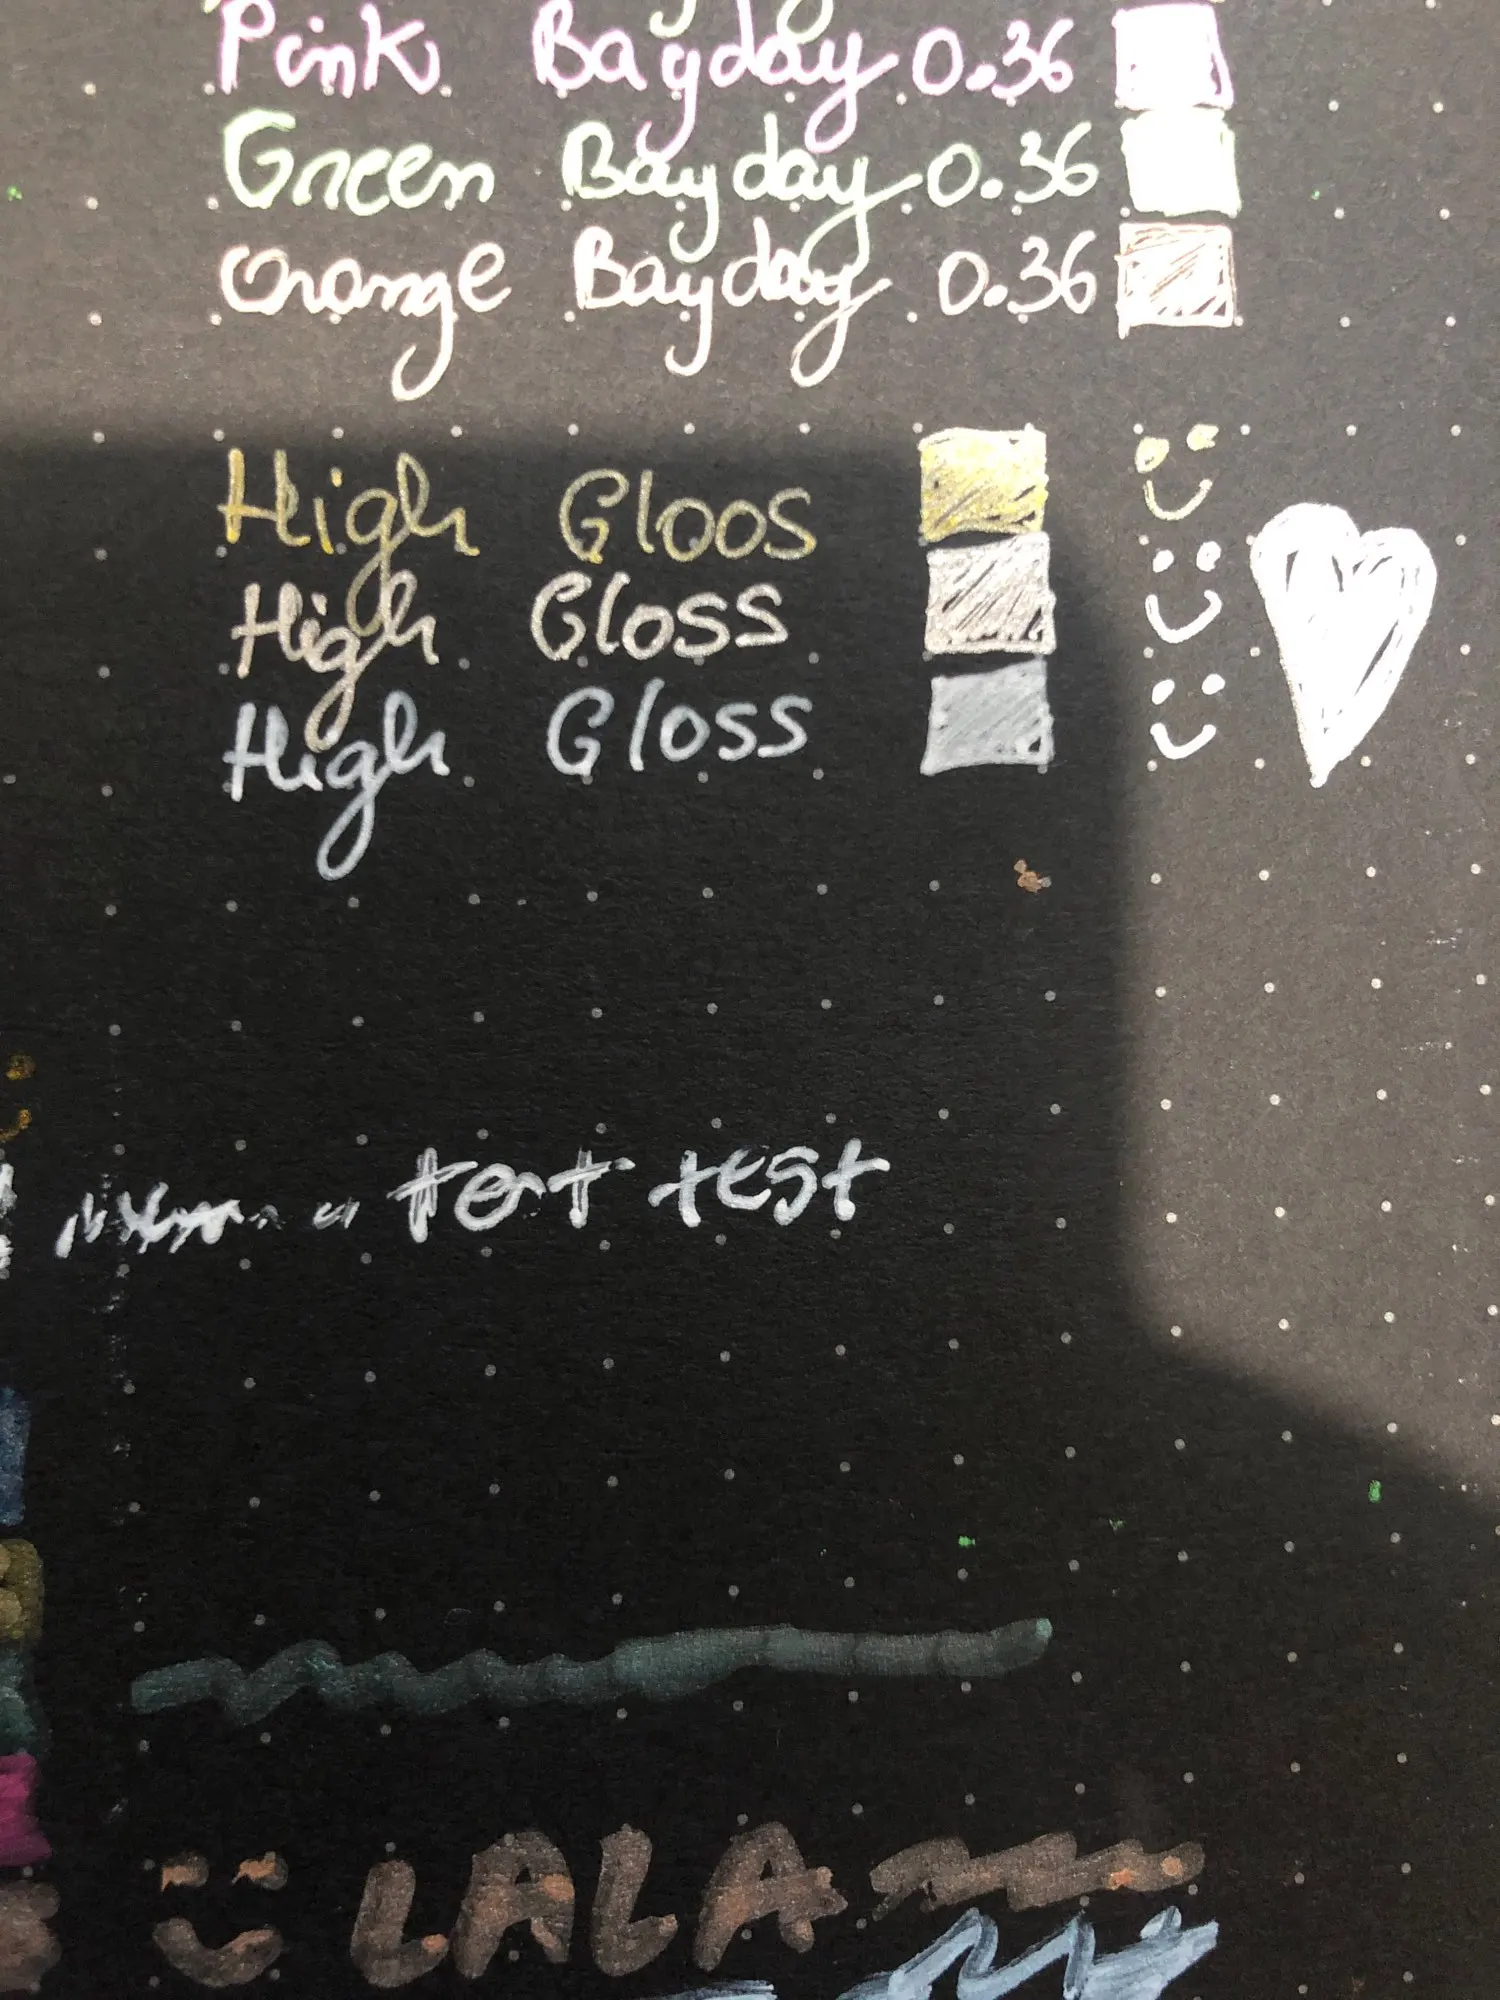 Pink Bayday 0.36
Green Bayday 0.36
Orange Bayday 0.36
High Gloos
High Gloss
High Gloss
test test
LALA